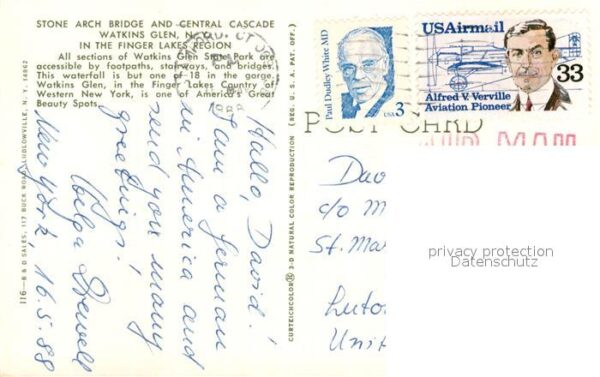 STONE ARCH BRIDGE AND CENTRAL CASCADE
WATKINS GLEN, N.
IN THE FINGER LAKES REGION
All sections of Watkins Glen State Park are
accessible by footpaths, stairways, and bridges.
This waterfall is but one of 18 in the gorge.
Watkins Glen, in the Finger Lakes Country of
Western New York, is one of America's Great
Beauty Spots.
Hallo, David!
I am a German
in America and
send you many
greetings!
Helga
New York, 16.5.88
116—B & D SALES, 117 BUCK ROAD, LUDLOWVILLE, N. Y. 14862
CURTEICHCOLOR® 3-D NATURAL COLOR REPRODUCTION (REG. U.S.A. PAT. OFF.)
Paul Dudley White MD
USA 3
USAirmail
33
Alfred V. Verville
Aviation Pioneer
POST CARD
Dav
c/o M
St. Mar
Luto
Unit
privacy protection
Datenschutz